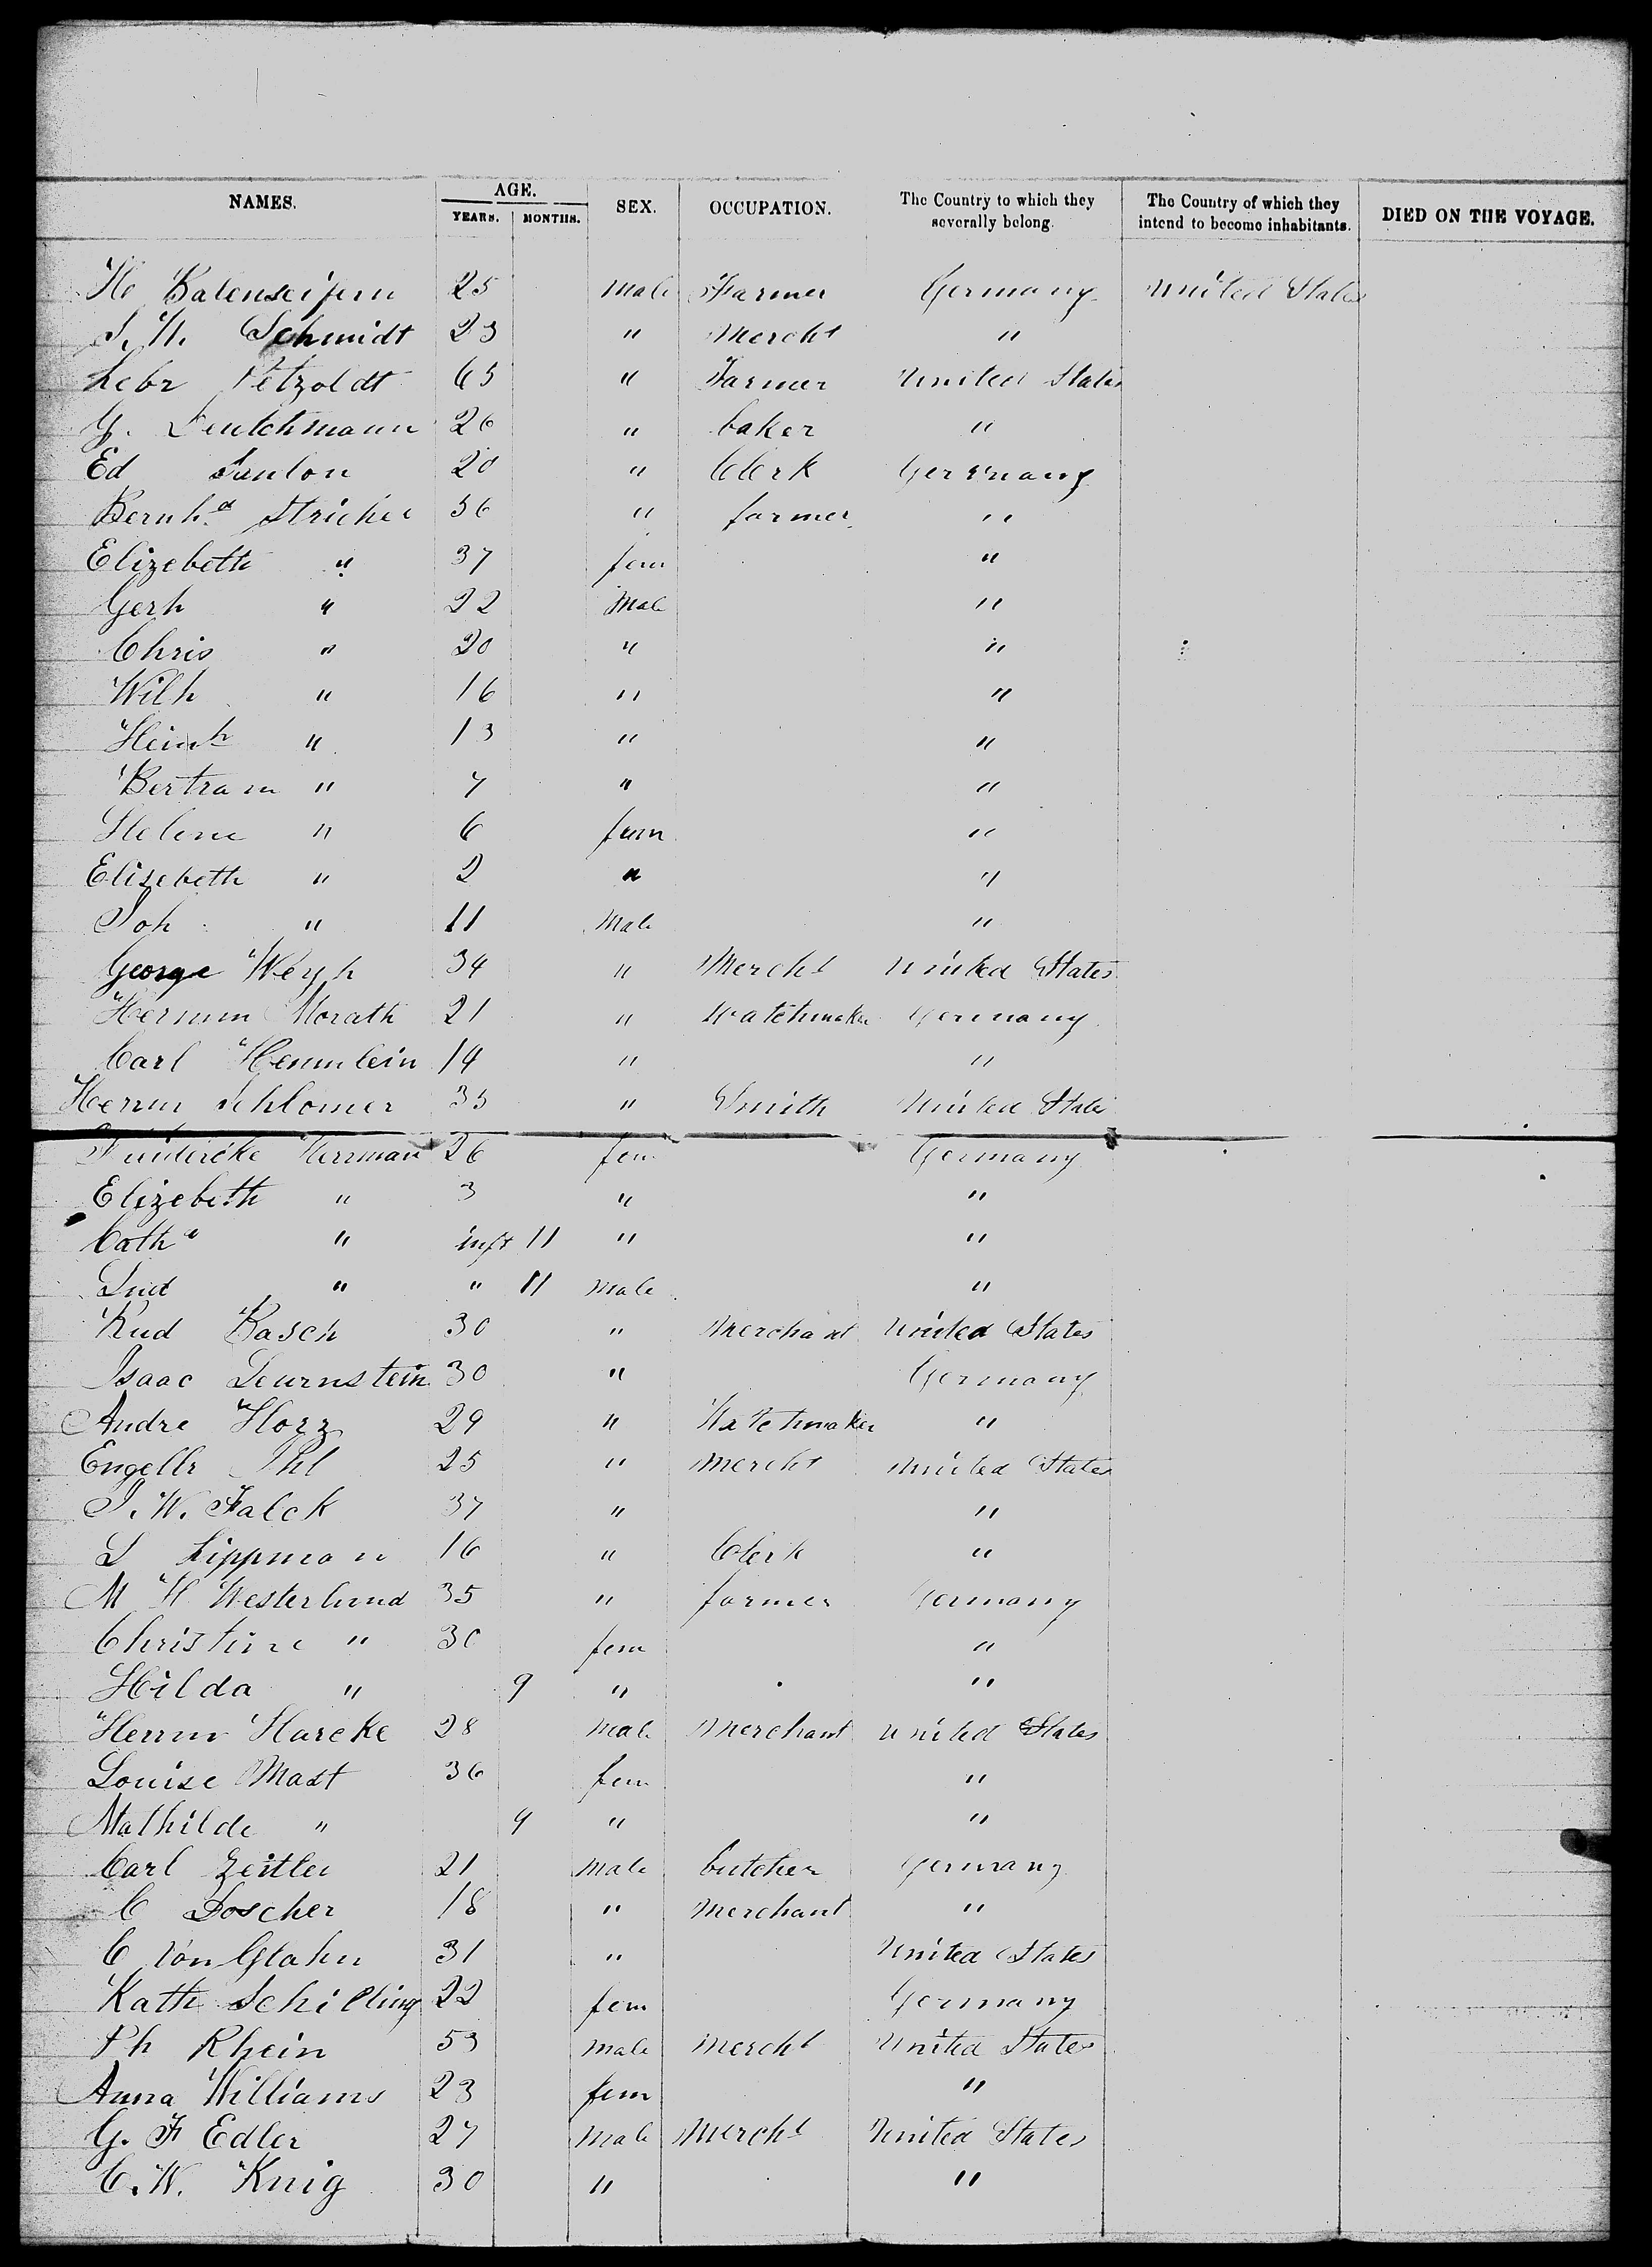 NAMES. AGE. SEX. OCCUPATION. The Country to which they severally belong. The Country of which they intend to become inhabitants. DIED ON THE VOYAGE.
YEARS. MONTHS.
He Balenseifern 25 Male Farmer Germany United States
S. H. Schmidt 23 " Mercht "
Lebr Petzoldt 65 " Farmer United States
G. Deutchmann 26 " baker "
Ed 20 " Clerk Germany
Bernhd Stricker 36 " farmer "
Elizebeth " 37 fem "
Gerh " 22 Male "
Chris " 20 " "
Wilh " 16 " "
Heinh " 13 " "
Bertram " 7 " "
Helene " 6 fem "
Elisebeth " 2 " "
Joh " 11 Male "
George Weyh 34 " Mercht United States
Hermm Morath 21 " Watchmaker Germany
Carl Hemmlein 14 " "
Herrm Schlomer 35 " Smith United States
Herrman 26 fem Germany
Elizebeth " 3 " "
Catha " inft 11 " "
Lud " " 11 male "
Rud Rasch 30 " Merchant United States
Isaac Deurnstein 30 " Germany
Andre Horz 29 " Watchmaker "
Engellr Phl 25 " Mercht United States
J. W. Falck 37 " "
L Lippman 16 " Clerk "
M H Westerlund 35 " farmer Germany
Christine " 30 fem "
Hilda " 9 " "
Herrm Harcke 28 Male Merchant United States
Louise Mast 36 fem "
Mathilde " 9 " "
Carl Zeitler 21 Male butcher Germany
C Doscher 18 " Merchant "
C von Glahn 31 " United States
Kath Schilling 22 fem Germany
Ph Rhein 53 Male Mercht United States
Anna Williams 23 fem "
G. F Edler 27 Male Mercht United States
C. W. Knig 30 " "